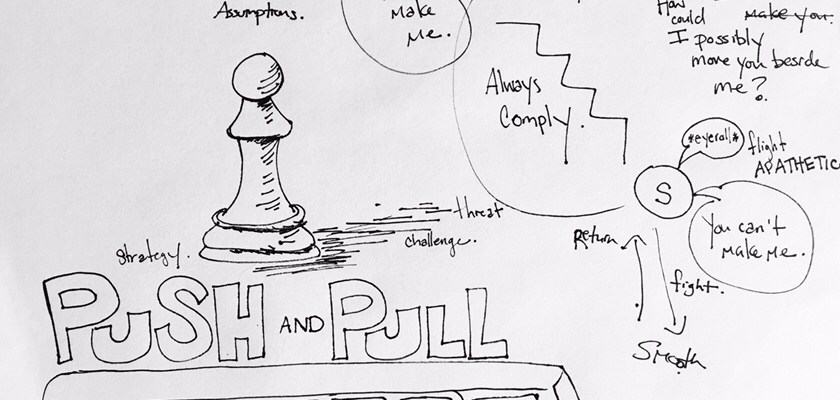 Assumptions.
Make
Me.
Always
Comply.
How
could make you.
I possibly
move you beside
me?
*eyeroll*
flight
APATHETIC
S
You can't
Make Me.
Return
fight.
Smooth
threat
challenge.
Strategy.
PUSH AND PULL